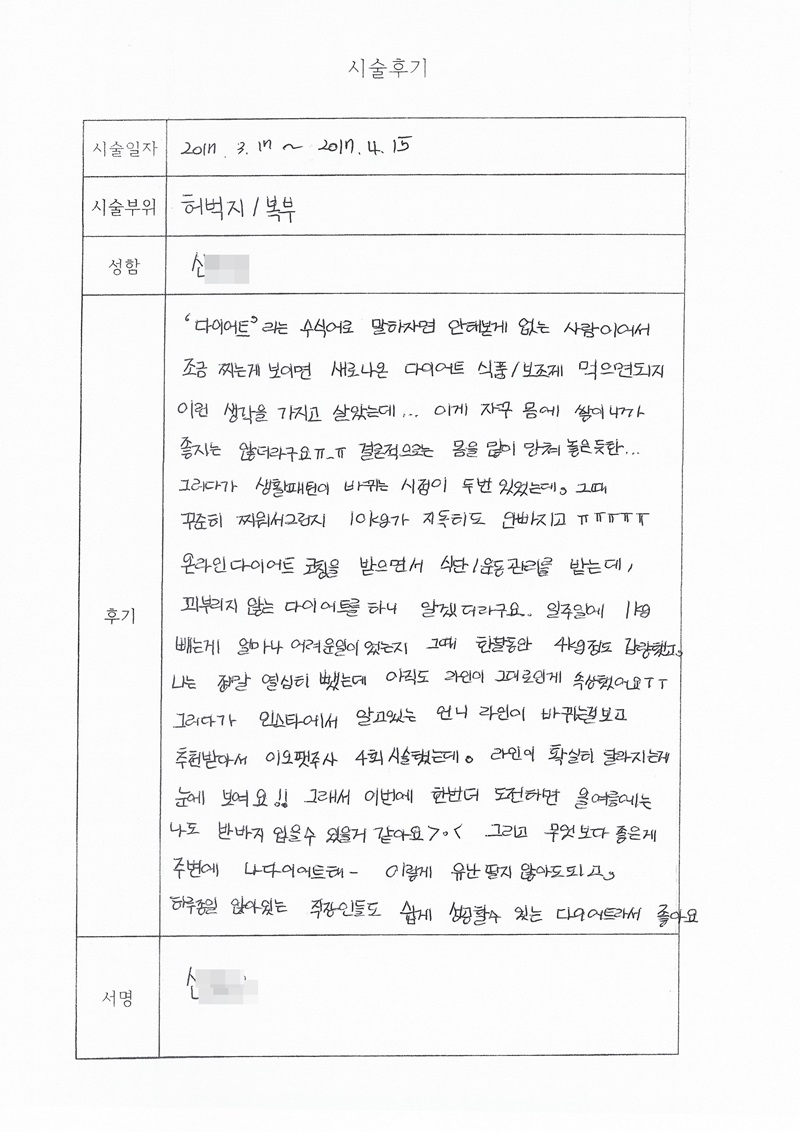 시술후기
시술일자 2017. 3. 17 ~ 2017. 4. 15
시술부위 허벅지 / 복부
성함 신
후기
"다이어트" 라는 수식어로 말하자면 안해본게 없는 사람이어서
조금 찌는게 보이면 새로나온 다이어트 식품/보조제 먹으면되지
이런 생각을 가지고 살았는데... 이게 자꾸 몸에 쌓이니까
좋지는 않더라구요ㅠ_ㅠ 결론적으로는 몸을 많이 망쳐 놓은듯한...
그러다가 생활패턴이 바뀌는 시점이 두번 있었는데, 그때
꾸준히 찌워서그런지 10kg가 지독히도 안빠지고 ㅠㅠㅠㅠㅠ
온라인다이어트 코칭을 받으면서 식단/운동관리를 받는데,
피부리지 않는 다이어트를 하니 알겠더라구요.. 일주일에 1kg
빼는게 얼마나 어려운일이 있는지 그때 한달동안 4kg정도 감량했고,
나는 정말 열심히 뺐는데 아직도 라인이 그대로인게 속상했어요ㅜㅜ
그러다가 인스타에서 알고있는 언니 라인이 바뀌는걸보고
추천받아서 이오팻주사 4회시술했는데. 라인이 확실히 달라지는게
눈에 보여요!! 그래서 이번에 한번더 도전하면 올여름에는
나도 반바지 입을수 있을거 같아요>.< 그리고 무엇보다 좋은게
주변에 나다이어트해~ 이렇게 유난 떨지 않아도되고,
하루종일 앉아있는 직장인들도 쉽게 성공할수 있는 다이어트라서 좋아요
서명 신